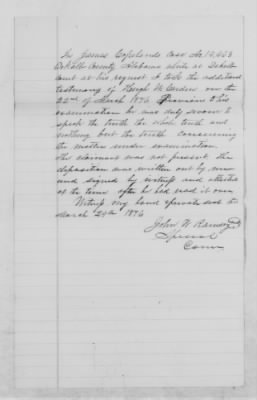 In James Copelands Case No. 14,453
DeKalb County Alabama while at DeKalb
Court at his request I took the additional
testimony of Hugh W. Carden on the
22nd of March 1876 Previous to his
examination he was duly sworn to
speak the truth the whole truth and
nothing but the truth concerning
the matter under examination.
The claimant was not present the
deposition was written out by me
and signed by witness and attested
at the time after he had read it over
Witness my hand and seal this
March 29th 1876
John W. Ramsey
Special
Comr